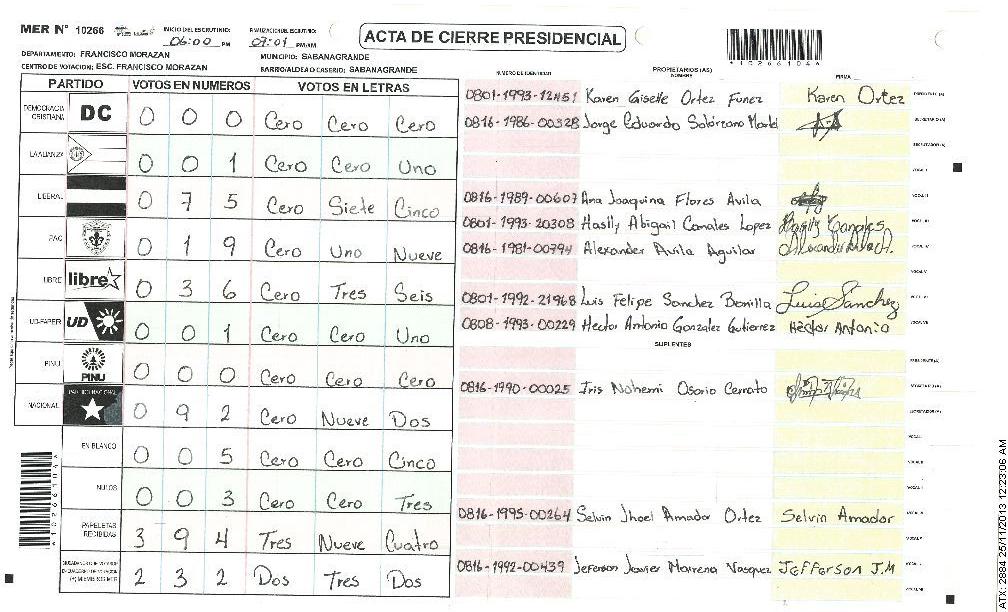 MER Nº 10266
INICIO DEL ESCRUTINIO: 06:00 PM
FINALIZACION DEL ESCRUTINIO: 07:01 PM/AM
ACTA DE CIERRE PRESIDENCIAL
*10266104*
DEPARTAMENTO: FRANCISCO MORAZAN
MUNICIPIO: SABANAGRANDE
CENTRO DE VOTACION: ESC. FRANCISCO MORAZAN
BARRIO/ALDEA O CASERIO: SABANAGRANDE
PARTIDO VOTOS EN NUMEROS VOTOS EN LETRAS
DEMOCRACIA CRISTIANA DC 0 0 0 Cero Cero Cero
LA ALIANZA 0 0 1 Cero Cero Uno
LIBERAL 0 7 5 Cero Siete Cinco
PAC 0 1 9 Cero Uno Nueve
LIBRE libre 0 3 6 Cero Tres Seis
UD-FAPER UD 0 0 1 Cero Cero Uno
PINU PINU 0 0 0 Cero Cero Cero
NACIONAL PARTIDO NACIONAL 0 9 2 Cero Nueve Dos
EN BLANCO 0 0 5 Cero Cero Cinco
NULOS 0 0 3 Cero Cero Tres
PAPELETAS RECIBIDAS 3 9 4 Tres Nueve Cuatro
2 3 2 Dos Tres Dos
NUMERO DE IDENTIDAD PROPIETARIOS (AS) NOMBRE FIRMA
0801-1993-12451 Karen Giselle Ortez Funez Karen Ortez PRESIDENTE (A)
0816-1986-00328 Jorge Eduardo Solorzano SECRETARIO (A)
ESCRUTADOR (A)
VOCAL I
0816-1989-00607 Ana Joaquina Flores Avila VOCAL II
0801-1993-20308 Haslly Abigail Canales Lopez Haslly Canales VOCAL III
0816-1981-00794 Alexander Avila Aguilar VOCAL IV
VOCAL V
0801-1992-21968 Luis Felipe Sanchez Bonilla Luis Sanchez VOCAL VI
0808-1993-00229 Hector Antonio Gonzalez Gutierrez Héctor Antonio VOCAL VII
SUPLENTES
PRESIDENTE (A)
0816-1990-00025 Iris Nohemi Osorio Cerrato SECRETARIO (A)
ESCRUTADOR (A)
VOCAL I
VOCAL II
0816-1995-00264 Selvin Jhoel Amador Ortez Selvin Amador
0816-1992-00439 Jeferson Javier Mairena Vasquez Jefferson J.M
*10266104*
ATX: 2884 25/11/2013 12:23:06 AM